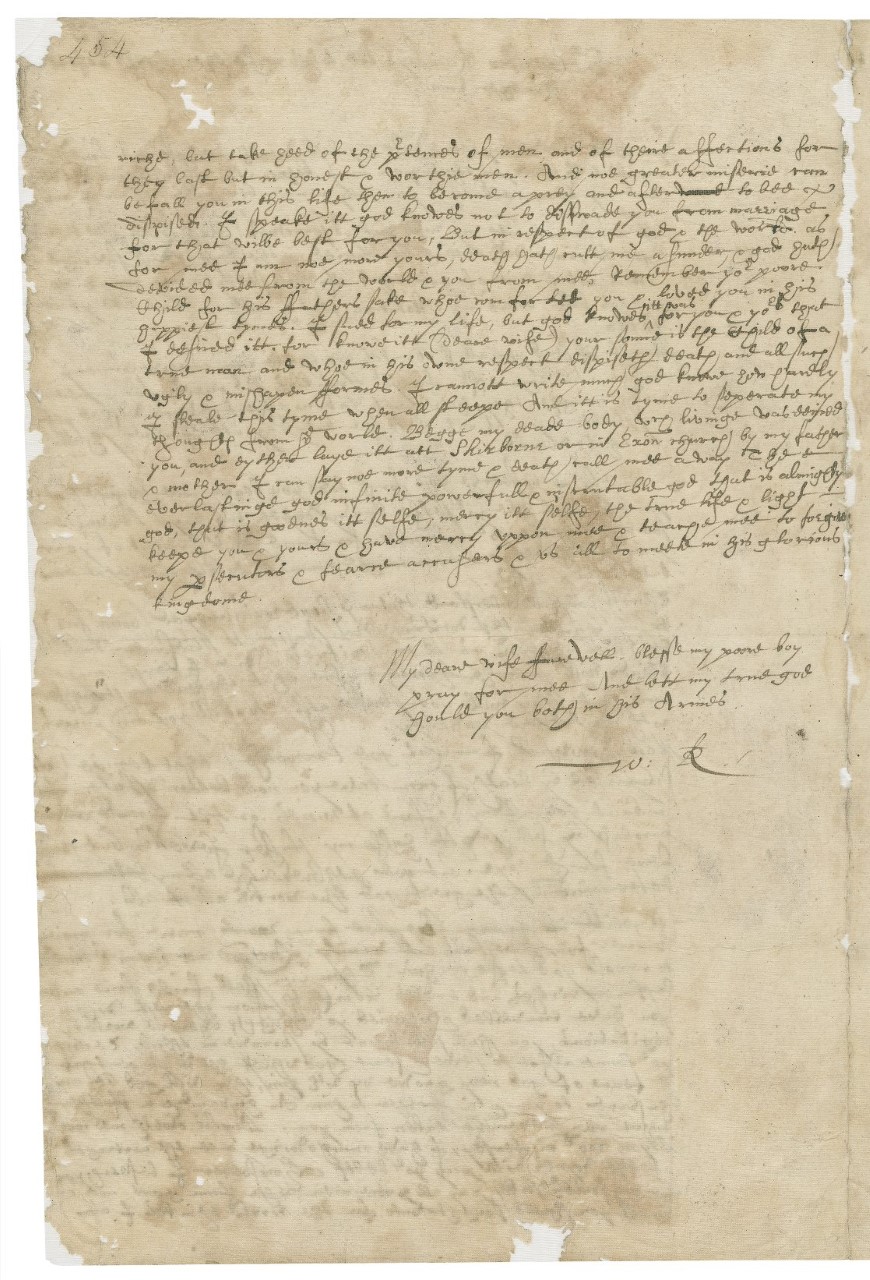 454
riche, but take heed of the pretences of men and of theire affections for
they last but in honest & worthie men. And noe greater miserie can
befall you in this life then to become a prey and after to bee
dispised. I speake itt god knowes not to disswade you from marriage
for that wilbe best for you, But in respect of god & the world. as
for mee I am noe more yours, death hath cutt me a sunder & god hath
devided mee from the world & you from mee, Remember yor poore
Child for his ffathers sake whoe comforted you & loved you in his
happiest tymes. I sued for my life, but god knowes itt was for you & yors that
I desired itt. for knowe itt (deare wife) your sonne is the Child of a
true man and whoe in his owne respect dispiseth death and all such
vgily & mishapen fformes. I cannott write much, god knowe how hardly
I steale this tyme when all sleepe And itt is tyme to seperate my
thoughts from ye world. Begge my deade body, wch livinge was denied
you, and eyther laye itt att Shirborne or in Exon church by my father
& mother. I can say noe more tyme & death call mee away The
everlastinge god infinite powerfull & inscrutable god that is almighty
god, that is goodnes itt selfe, mercy itt selfe, the true life & light
keepe you & yours & have mercy vppon mee & teache mee to forgive
my psecutors & fearce accusers & vs all to meete in his glorious
kingdome.
My deare wife ffarewell. blesse my poore boy
pray for mee And lett my true god
hould you both in his Armes
W: R.